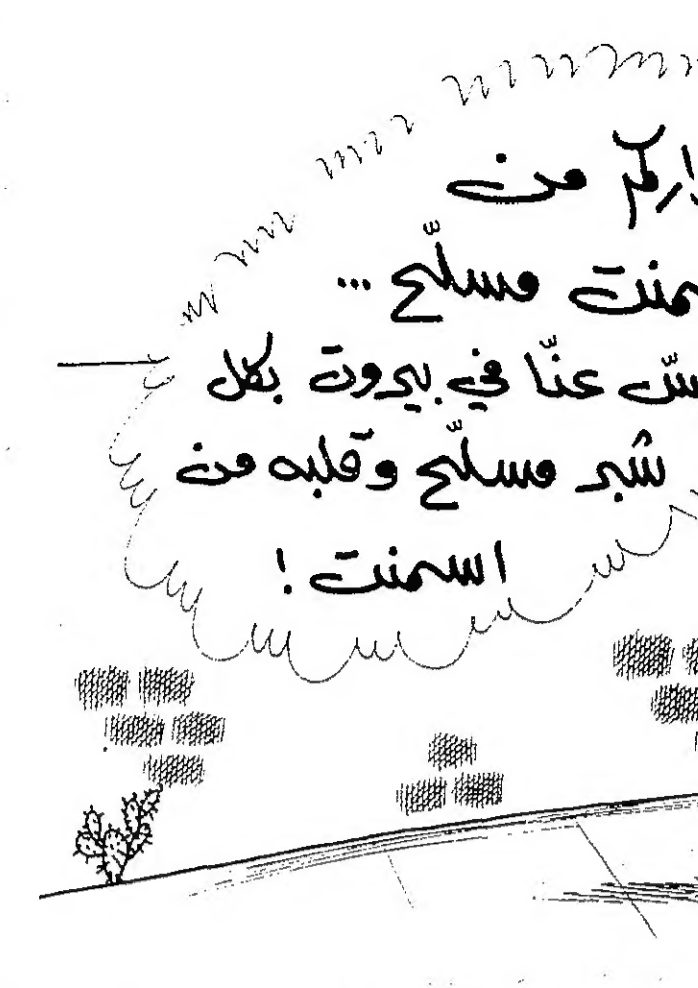 من
مسلّح ...
عنّا في بيروت بكل
شبر مسلّح وقلبه من
اسمنت !